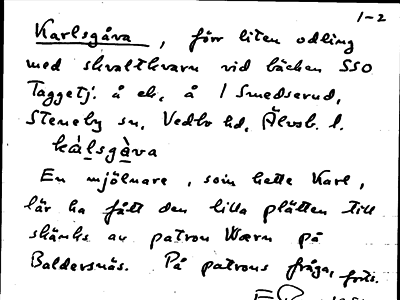 1-2
Karlsgåva, förr liten odling
med skvaltkvarn vid bäcken SSO
Taggetj. å ek, å 1 Smedserud,
Steneby sn, Vedbo hd, Älvsb. l.
kàlsgàva
En mjölnare, som hette Karl,
lär ha fått den lilla plätten till
skänks av patron Wærn på
Baldersnäs. På patrons fråga, forts.